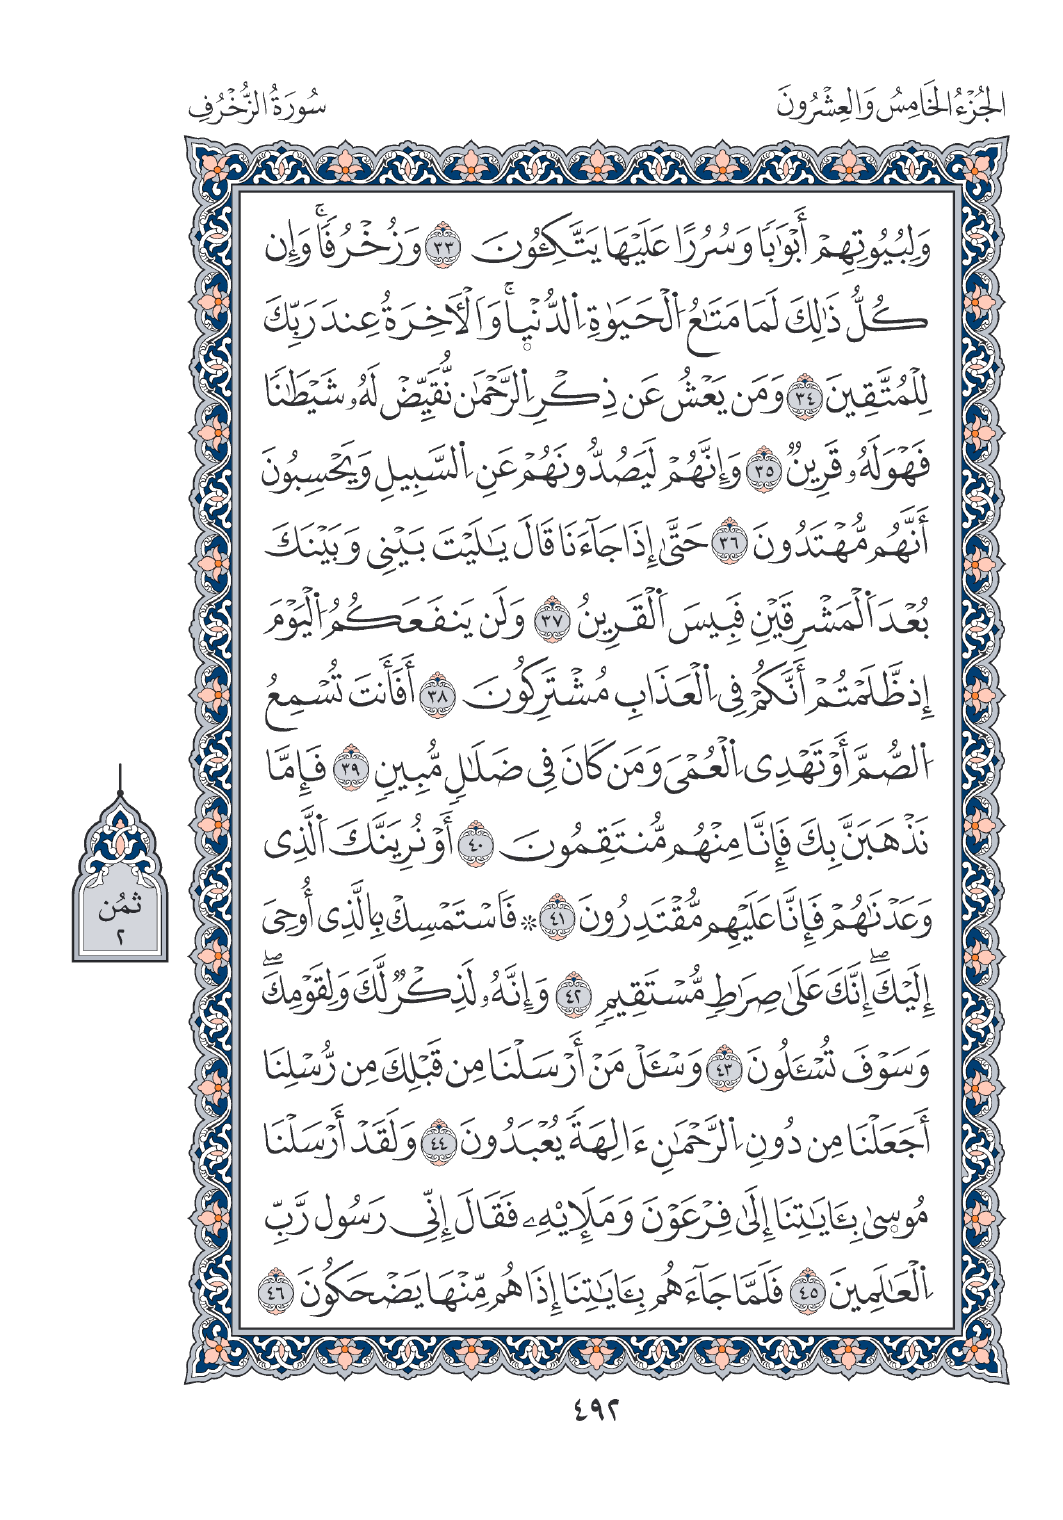 الجُزْءُ الخَامِسُ وَالعِشْرُونَ
سُورَةُ الزُّخْرُفِ
وَلِبُيُوتِهِمْ أَبْوَٰبٗا وَسُرُرًا عَلَيْهَا يَتَّكِـُٔونَ ٣٣ وَزُخْرُفٗاۚ وَإِن
كُلُّ ذَٰلِكَ لَمَا مَتَٰعُ اُ۬لْحَيَوٰةِ اِ۬لدُّنْيٜاۚ وَالَاخِرَةُ عِندَ رَبِّكَ
لِلْمُتَّقِينَ ٣٤ وَمَن يَعْشُ عَن ذِكْرِ اِ۬لرَّحْمَٰنِ نُقَيِّضْ لَهُۥ شَيْطَٰنٗا
فَهْوَ لَهُۥ قَرِينٞ ٣٥ وَإِنَّهُمْ لَيَصُدُّونَهُمْ عَنِ اِ۬لسَّبِيلِ وَيَحْسِبُونَ
أَنَّهُم مُّهْتَدُونَ ٣٦ حَتَّىٰ إِذَا جَآءَنَا قَالَ يَٰلَيْتَ بَيْنِي وَبَيْنَكَ
بُعْدَ اَ۬لْمَشْرِقَيْنِ فَبِيسَ اَ۬لْقَرِينُ ٣٧ وَلَن يَنفَعَكُمُ اُ۬لْيَوْمَ
إِذ ظَّلَمْتُمْ أَنَّكُمْ فِي اِ۬لْعَذَابِ مُشْتَرِكُونَ ٣٨ أَفَأَنتَ تُسْمِعُ
اُ۬لصُّمَّ أَوْ تَهْدِي اِ۬لْعُمْيَ وَمَن كَانَ فِي ضَلَٰلٖ مُّبِينٖ ٣٩ فَإِمَّا
نَذْهَبَنَّ بِكَ فَإِنَّا مِنْهُم مُّنتَقِمُونَ ٤٠ أَوْ نُرِيَنَّكَ اَ۬لَّذِي
وَعَدْنَٰهُمْ فَإِنَّا عَلَيْهِم مُّقْتَدِرُونَ ٤١ ۞ فَاسْتَمْسِكْ بِالَّذِي أُوحِيَ
إِلَيْكَۖ إِنَّكَ عَلَىٰ صِرَٰطٖ مُّسْتَقِيمٖ ٤٢ وَإِنَّهُۥ لَذِكْرٞ لَّكَ وَلِقَوْمِكَۖ
وَسَوْفَ تُسْـَٔلُونَ ٤٣ وَسْـَٔلْ مَنْ أَرْسَلْنَا مِن قَبْلِكَ مِن رُّسْلِنَا
أَجَعَلْنَا مِن دُونِ اِ۬لرَّحْمَٰنِ ءَالِهَةٗ يُعْبَدُونَ ٤٤ وَلَقَدْ أَرْسَلْنَا
مُوسٜىٰ بِـَٔايَٰتِنَا إِلَىٰ فِرْعَوْنَ وَمَلَإِيْهِۦ فَقَالَ إِنِّي رَسُول رَّبِّ
اِ۬لْعَٰلَمِينَ ٤٥ فَلَمَّا جَآءَهُم بِـَٔايَٰتِنَا إِذَا هُم مِّنْهَا يَضْحَكُونَ ٤٦
ثُمُن
٢
٤٩٢